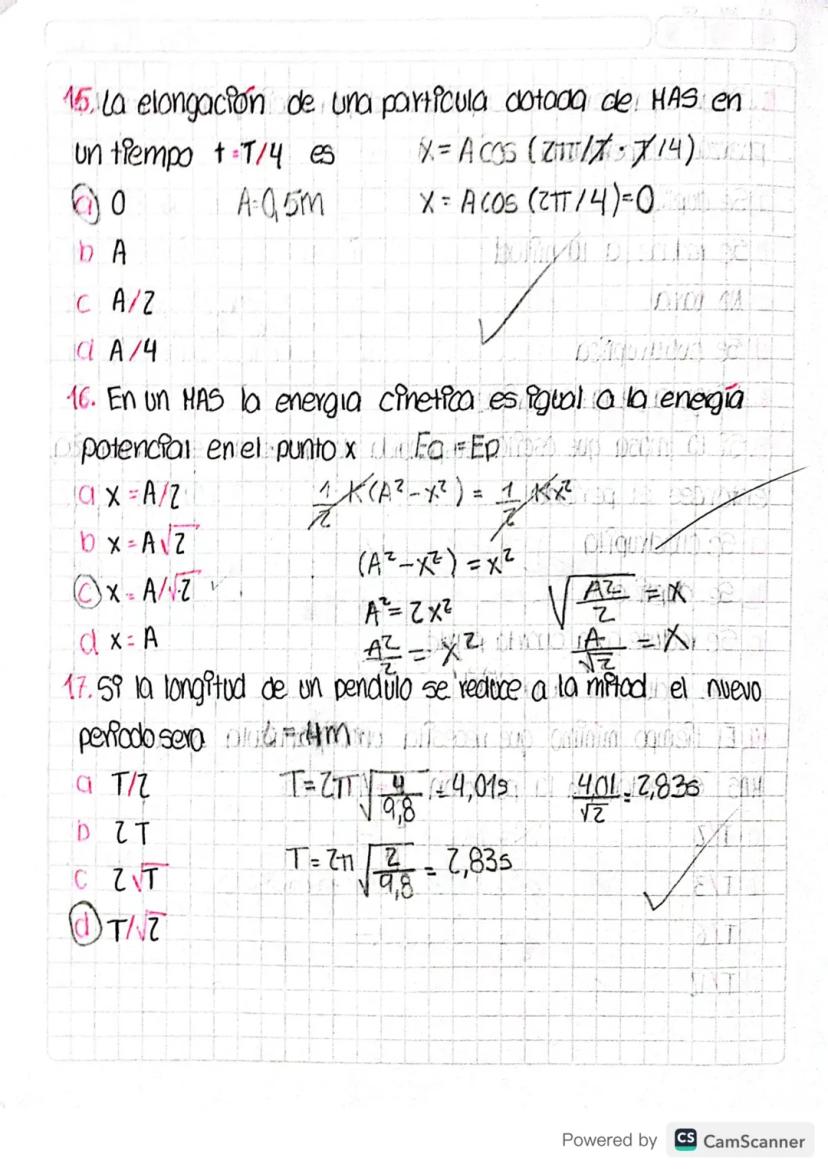 15. La elongación de una particula dotada de MAS en
un tiempo t=T/4 es x = A cos (2π/T · T/4)
a) 0 A=0,5m x = A cos (2π/4)=0
b A
c A/2
d A/4
16. En un MAS la energia cinetica es igual a la energía
potencial en el punto x Ec = Ep
a x = A/2 1/2 K(A² - x²) = 1/2 Kx²
b x = A√2 (A² - x²) = x²
c x = A/√2 A² = 2x² √A²/2 = x
d x = A A²/2 = x² A/√2 = x
17. Si la longitud de un pendulo se reduce a la mitad el nuevo
periodo sera L = 4m
a T/2 T = 2π √4/9,8 = 4,01s 4,01/√2 = 2,83s
b 2T
c 2√T T = 2π √2/9,8 = 2,83s
d T/√2
Powered by CS CamScanner